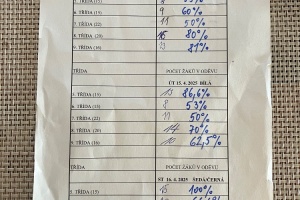 6. TŘÍDA (15) 9 60%
7. TŘÍDA (22) 11 50%
8. TŘÍDA (20) 16 80%
9. TŘÍDA (16) 13 81%
TŘÍDA POČET ŽÁKŮ V ODĚVU
ÚT 15. 4. 2025 BÍLÁ
5. TŘÍDA (15) 13 86,6%
6. TŘÍDA (15) 8 53%
7. TŘÍDA (22) 11 50%
8. TŘÍDA (20) 14 70%
9. TŘÍDA (16) 10 62,5%
TŘÍDA POČET ŽÁKŮ V ODĚVU
ST 16. 4. 2025 ŠEDÁ/ČERNÁ
5. TŘÍDA (15) 15 100%